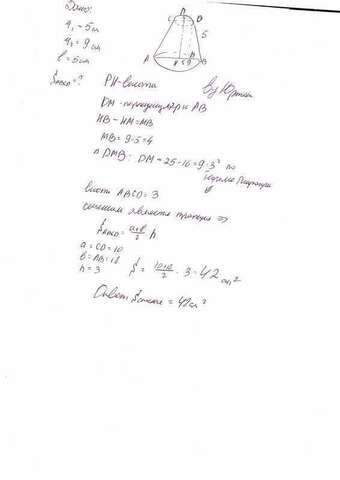 Дано:
r₁ = 5 см
r₂ = 9 см
l = 5 см
S ABCD = ?
P C D
5
A H M B
PH - высота
By Юрчик
DM - перпендикуляр к AB
HB - HM = MB
MB = 9 - 5 = 4
DMB: DM = 25 - 16 = 9 = 3² по
Теореме Пифагора
высота ABCD = 3
сечением является трапеция =>
S ABCD = a+b/2 h
a = CD = 10
b = AB = 18
h = 3
S = 10+18/2 · 3 = 42 см²
Ответ S сечение = 42 см²